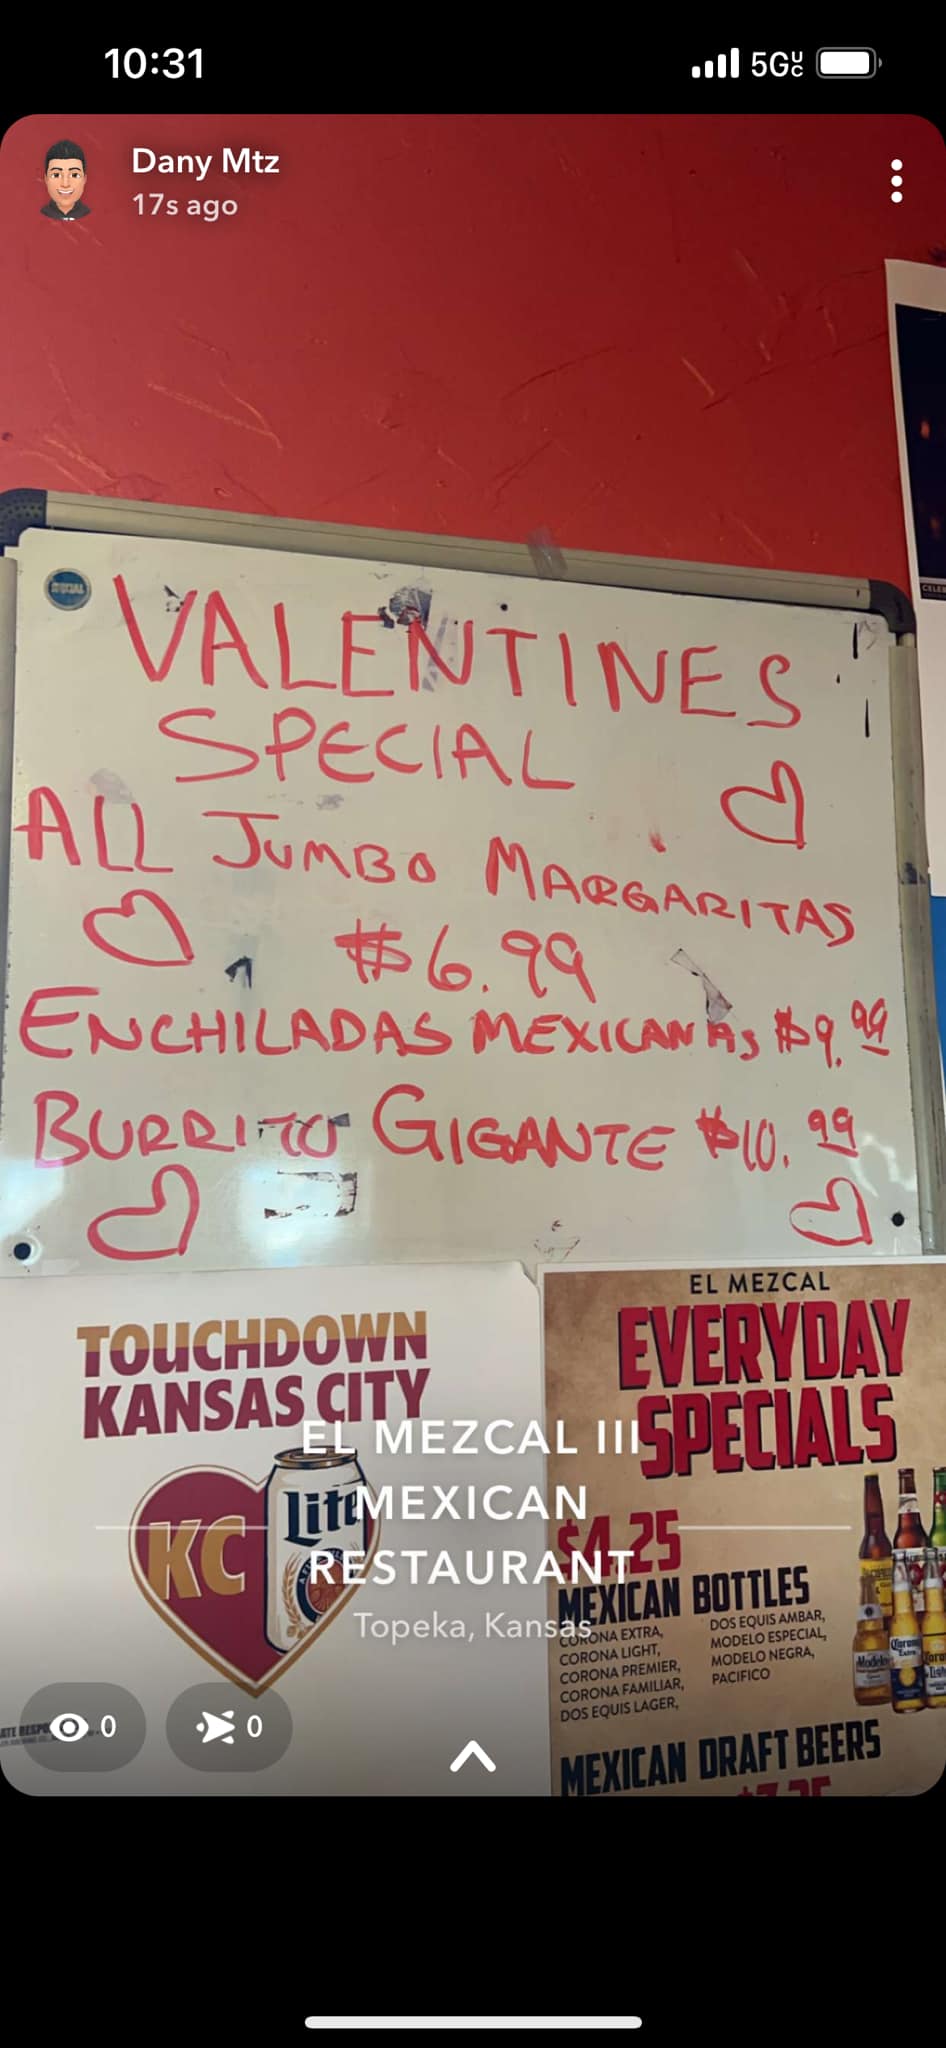 10:31
5G UC
Dany Mtz
17s ago
VALENTINES
SPECIAL
ALL JUMBO MARGARITAS
$6.99
ENCHILADAS MEXICANAS $9.99
BURRITO GIGANTE $10.99
TOUCHDOWN
KANSAS CITY
KC
Lite
EL MEZCAL
EVERYDAY
SPECIALS
$4.25
MEXICAN BOTTLES
CORONA EXTRA,
CORONA LIGHT,
CORONA PREMIER,
CORONA FAMILIAR,
DOS EQUIS LAGER,
DOS EQUIS AMBAR,
MODELO ESPECIAL,
MODELO NEGRA,
PACIFICO
Modelo
Corona
MEXICAN DRAFT BEERS
EL MEZCAL III
MEXICAN
RESTAURANT
Topeka, Kansas
0
0